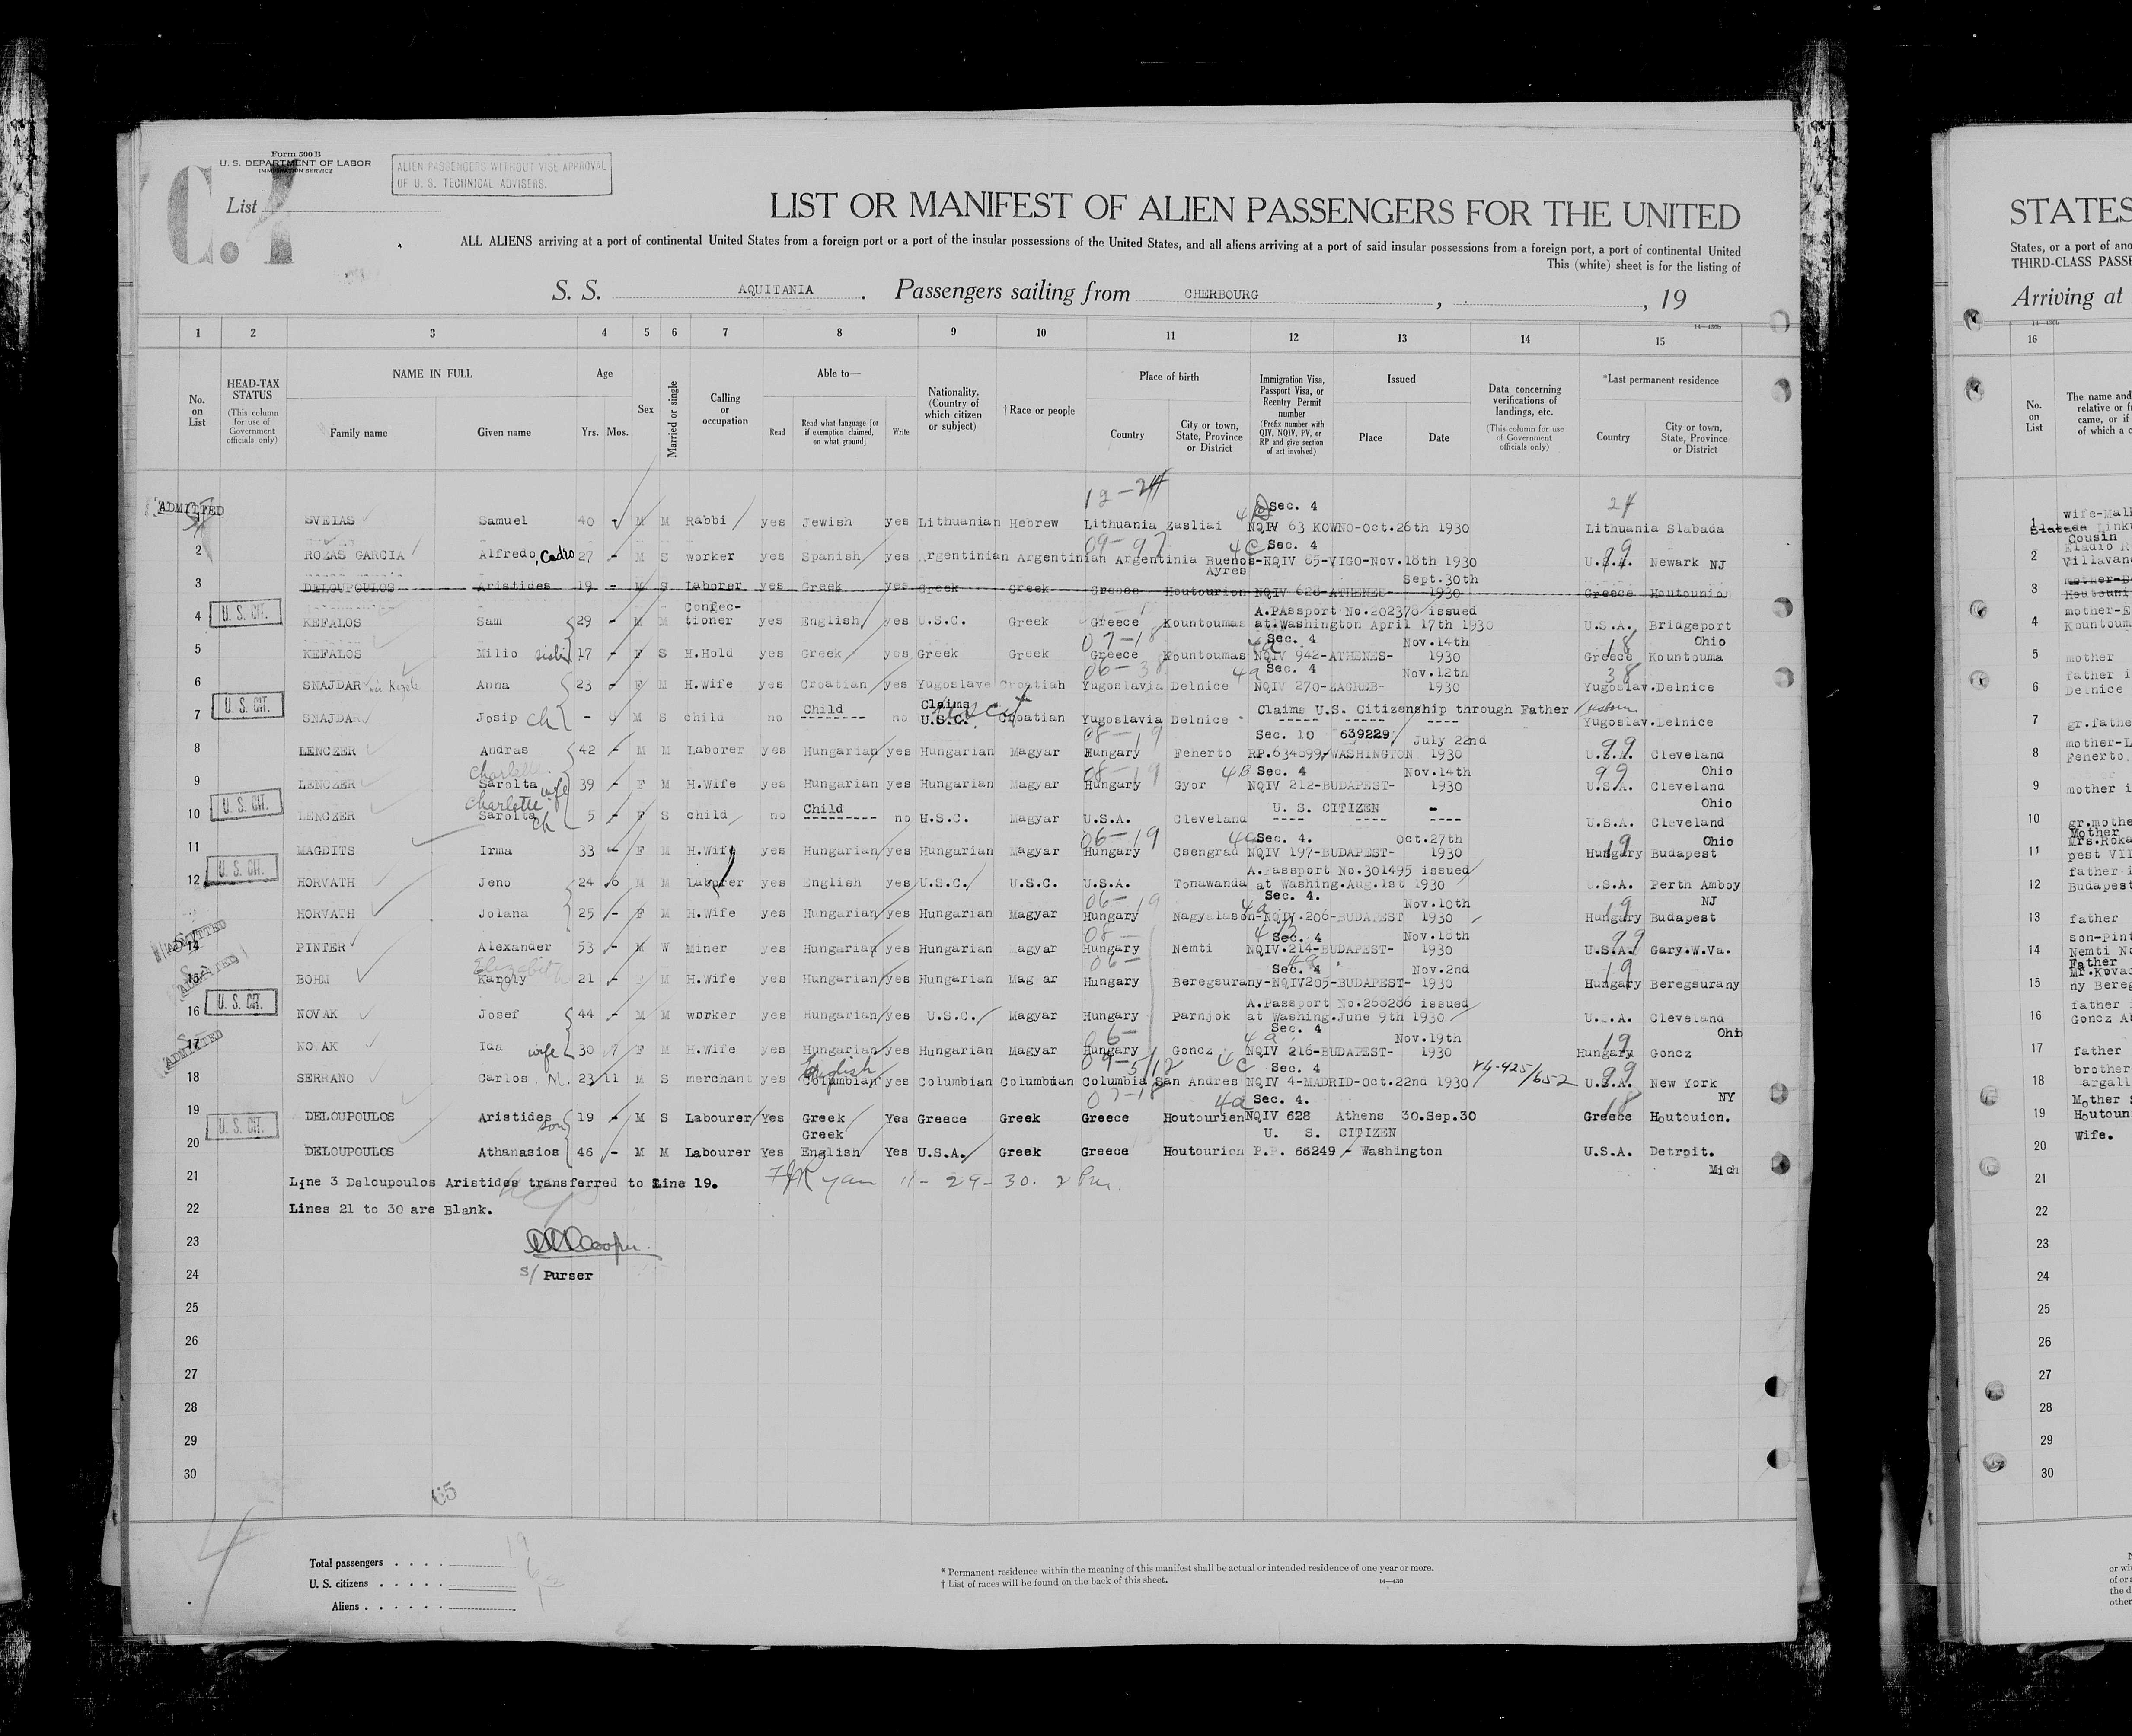 Form 500 B
U. S. DEPARTMENT OF LABOR
IMMIGRATION SERVICE
ALIEN PASSENGERS WITHOUT VISE APPROVAL
OF U. S. TECHNICAL ADVISERS.
List
LIST OR MANIFEST OF ALIEN PASSENGERS FOR THE UNITED
ALL ALIENS arriving at a port of continental United States from a foreign port or a port of the insular possessions of the United States, and all aliens arriving at a port of said insular possessions from a foreign port, a port of continental United
This (white) sheet is for the listing of
S. S. AQUITANIA . Passengers sailing from CHERBOURG , , 19
14—430b
1 2 3 4 5 6 7 8 9 10 11 12 13 14 15
No. on List
HEAD-TAX STATUS (This column for use of Government officials only)
NAME IN FULL
Family name Given name
Age
Yrs. Mos.
Sex
Married or single
Calling or occupation
Able to—
Read Read what language [or if exemption claimed, on what ground] Write
Nationality. (Country of which citizen or subject)
†Race or people
Place of birth
Country City or town, State, Province or District
Immigration Visa, Passport Visa, or Reentry Permit number (Prefix number with QIV, NQIV, PV, or RP and give section of act involved)
Issued
Place Date
Data concerning verifications of landings, etc. (This column for use of Government officials only)
*Last permanent residence
Country City or town, State, Province or District
12-24 Sec. 4 24
ADMITTED
SVEIAS Samuel 40 - M M Rabbi yes Jewish yes Lithuanian Hebrew Lithuania Zasliai NQIV 63 KOWNO-Oct.26th 1930 Lithuania Slabada
09-97 4C Sec. 4 99
2 ROZAS GARCIA Alfredo, 27 - M S worker yes Spanish yes Argentinian Argentinian Argentinia Buenos-NQIV 85-VIGO-Nov.18th 1930 U.S.A. Newark NJ
Ayres Sept.30th
3 DELOUPOULOS Aristides 19 - M S Laborer yes Greek yes Greek Greek Greece Houtourion NQIV 628-ATHENES- 1930 Greece Houtounio
U. S. CIT. Confec- A.PAssport No.202378 issued
4 KEFALOS Sam 29 - M M tioner yes English yes U.S.C. Greek Greece Kountoumas at.Washington April 17th 1930 U.S.A. Bridgeport
07-18 4a Sec. 4 Nov.14th 18 Ohio
5 KEFALOS Milio sister 17 - F S H.Hold yes Greek yes Greek Greek Greece Kountoumas NQIV 942-ATHENES- 1930 Greece Kountouma
06-38 4a Sec. 4 Nov.12th 38
6 SNAJDAR Anna 23 - F M H.Wife yes Croatian yes Yugoslave Croatian Yugoslavia Delnice NQIV 270-ZAGREB- 1930 Yugoslav.Delnice
U. S. CIT. Child Claims Claims U.S. Citizenship through Father
7 SNAJDAR Josip ch - M S child no -------- no U.S.C. Croatian Yugoslavia Delnice ----- ----- ---- Yugoslav.Delnice
08-19 Sec. 10 639229 July 22nd 99
8 LENCZER Andras 42 - M M Laborer yes Hungarian yes Hungarian Magyar Hungary Fenerto RP.634099/WASHINGTON 1930 U.S.A. Cleveland
Charlotte 08-19 4B Sec. 4 Nov.14th 99 Ohio
9 LENCZER Sarolta wife 39 - F M H.Wife yes Hungarian yes Hungarian Magyar Hungary Gyor NQIV 212-BUDAPEST- 1930 U.S.A. Cleveland
U. S. CIT. Charlotte Child U. S. CITIZEN - Ohio
10 LENCZER Sarolta ch 5 - F S child no --------- no U.S.C. Magyar U.S.A. Cleveland ---- ---- ---- U.S.A. Cleveland
06-19 4a Sec. 4. Oct.27th 19 Ohio
11 MAGDITS Irma 33 - F M H.Wife yes Hungarian yes Hungarian Magyar Hungary Csengrad NQIV 197-BUDAPEST- 1930 Hungary Budapest
U. S. CIT. A.Passport No.301495 issued
12 HORVATH Jeno 24 6 M M Laborer yes English yes U.S.C. U.S.C. U.S.A. Tonawanda at Washing.Aug.1st 1930 U.S.A. Perth Amboy
06-19 4a Sec. 4. Nov.10th 19 NJ
HORVATH Jolana 25 - F M H.Wife yes Hungarian yes Hungarian Magyar Hungary Nagyalason-NQIV.206-BUDAPEST 1930 Hungary Budapest
ADMITTED 08- 4B Sec. 4 Nov.18th 99
14 PINTER Alexander 53 - M W Miner yes Hungarian yes Hungarian Magyar Hungary Nemti NQIV.214-BUDAPEST- 1930 U.S.A. Gary.W.Va.
ADMITTED Elizabeth 06- Sec. 4 Nov.2nd 19
15 BOHM Karoly 21 - F M H.Wife yes Hungarian yes Hungarian Mag ar Hungary Beregsurany-NQIV205-BUDAPEST- 1930 Hungary Beregsurany
U. S. CIT. A.Passport No.268286 issued
16 NOVAK Josef 44 - M M worker yes Hungarian yes U.S.C. Magyar Hungary Parnjok at Washing.June 9th 1930 U.S.A. Cleveland
ADMITTED 06- 4a Sec. 4 Nov.19th 19 Ohio
17 NOVAK Ida wife 30 7 F M H.Wife yes Hungarian yes Hungarian Magyar Hungary Goncz NQIV 216-BUDAPEST- 1930 Hungary Goncz
English 4C Sec. 4 99
18 SERRANO Carlos M. 23 11 M S merchant yes Columbian yes Columbian Columbian Columbia San Andres NQIV 4-MADRID-Oct.22nd 1930 U.S.A. New York
07-18 4a Sec. 4. 18 NY
19 DELOUPOULOS Aristides son 19 - M S Labourer Yes Greek Yes Greece Greek Greece Houtourion NQIV 628 Athens 30.Sep.30 Greece Houtouion.
U. S. CIT. Greek U. S. CITIZEN
20 DELOUPOULOS Athanasios 46 - M M Labourer Yes English Yes U.S.A. Greek Greece Houtourion P.P. 66249 - Washington U.S.A. Detroit.
Mich
21 Line 3 Deloupoulos Aristides transferred to Line 19. 11-29-30. 2 Pm.
22 Lines 21 to 30 are Blank.
23
24 S/ Purser
25
26
27
28
29
30
65
Total passengers . . . .
U. S. citizens . . . . .
Aliens . . . . . .
* Permanent residence within the meaning of this manifest shall be actual or intended residence of one year or more.
† List of races will be found on the back of this sheet.
14—430
STATES
States, or a port of ano
THIRD-CLASS PASSE
Arriving at
14—430b
16
No. on List
The name and
relative or fr
came, or if
of which a c
1 wife-Mal
Slabada
Cousin
2 Villavan
3 mother-D
4 mother-E
Kountoum
5 mother
father i
6 Delnice
7 gr.fathe
mother-L
8 Fenerto
9 mother i
10 gr.mothe
Mother
Mrs.Roka
11 pest VII
father i
12 Budapest
13 father
son-Pint
14 Nemti No
Father
Mr.Kovac
15 ny Bereg
father i
16 Goncz A
17 father
brother
18 argall
Mother
19 Houtoun
20 Wife.
21
22
23
24
25
26
27
28
29
30
or wh
of or a
the d
other